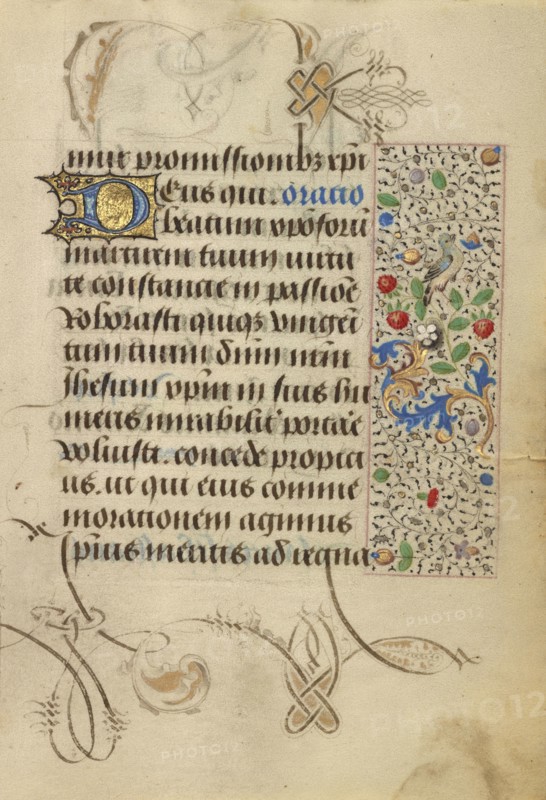 mur promissionibꝫ xpi
Deus qui. oratio
beatum xpõforũ
martirem tuum uirtu
te constancie in passiõe
roborasti quiqꝫ vnigeni
tum tuum dñm nr̃m
Jhesum xp̃m in suis hu
meris mirabilit' portare
voluisti. concede propici
us. ut qui eius comme
morationem agimus
ipius meritis ad regna